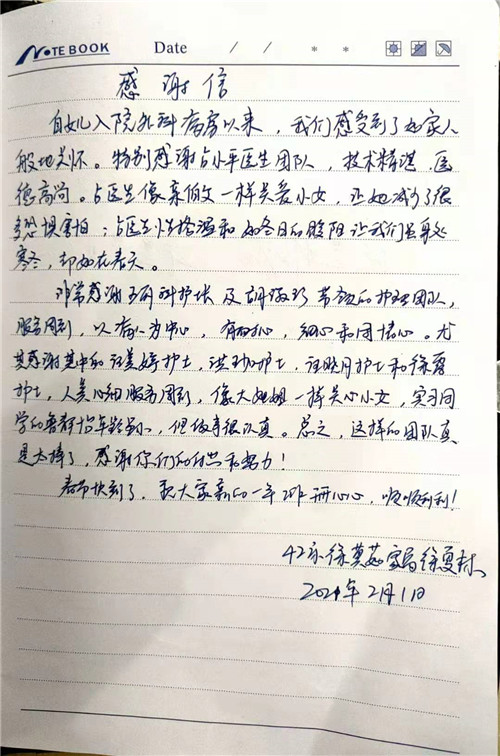 NOTE BOOK Date / / * *
感谢信
自女儿入院外科病房以来，我们感受到了如家人
般地关怀。特别感谢占小平医生团队，技术精湛，医
德高尚。占医生像亲伯父一样关爱小女，让她减少了很
多恐惧害怕；占医生性格温和如冬日的暖阳让我们虽身处
寒冬，却如在春天。
非常感谢 护士长及胡 带领的护理团队，
服务周到，以病人为中心，有耐心，细心和同情心。尤
其感谢其中的汪美婷护士，洪 护士，汪晓月护士和徐夏
护士，人美心细服务周到，像大姐姐一样关心小女，实习同
学的鲁静怡年龄虽小，但做事很认真。总之，这样的团队真
是太棒了，感谢你们的付出和努力！
春节快到了，祝大家新的一年 开开心心，顺顺利利！
42床徐 家属徐夏林
2021年2月1日